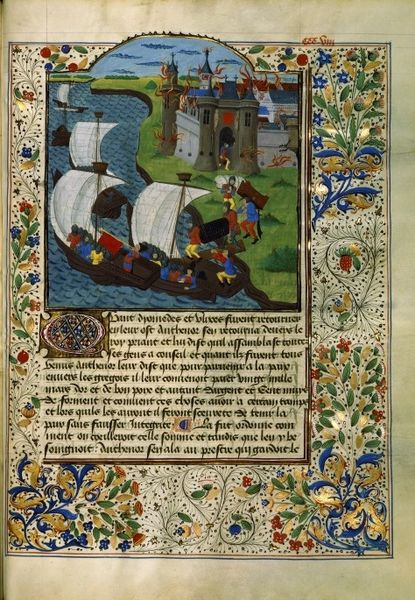 Quant dyomedes et ulixes furent retournez
en leur ost Anthenor sen retourna devers le
roy priant et lui dist quil assamblast toutes
ses gens a conseil et quant ilz furent tous
venus anthenor leur dist que pour parvenir a la paix
envers les gregois il leur convenoit paier vingt mille
mars dor et de bon pois et autant dargent et Cent muis
de forment et comment ces choses avoir a certain temps
et lors quilz les auront ilz feront seurete de tenir la
paix sans faulser Integrite La fut ordonne com
ment on cueilleroit celle somme et tandis que len y be
soingnoit Anthenor sen ala au prestre qui gardoit le